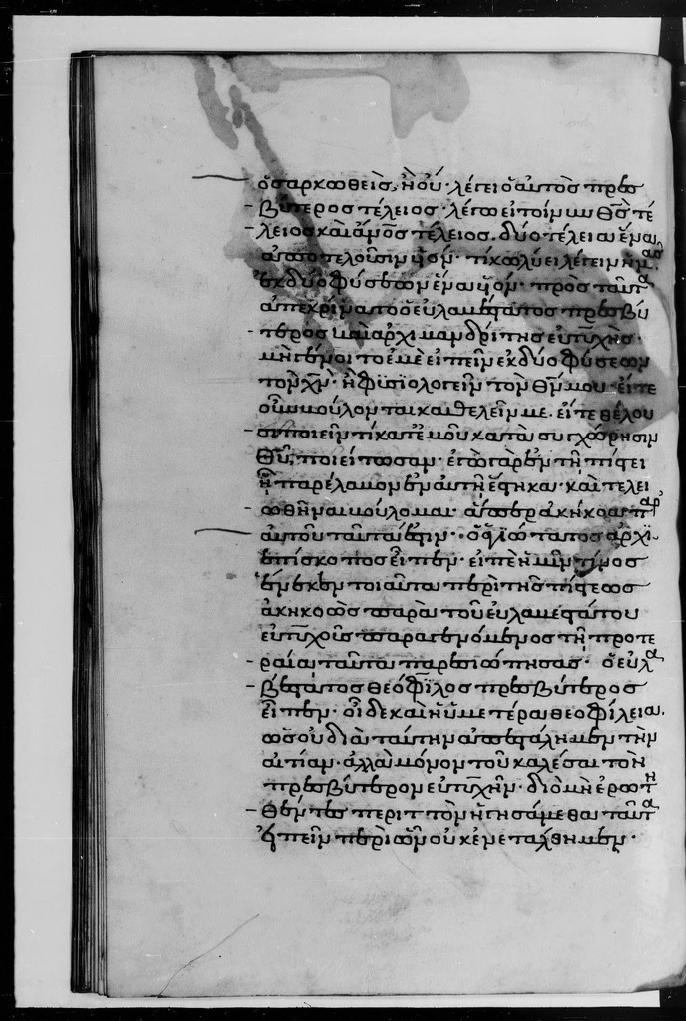 ὁ σαρκωθεὶς, ἢ οὔ· λέγει ὁ αὐτὸς πρεσ
βύτερος τέλειος· λέγω εἰ τοίνυν θς τέ
λειος καὶ ἄνος τέλειος. δύο τέλεια ἕνα
ἀποτελοῦσιν υν. τί κωλύει λέγειν ἡμᾶς
ἐκ δύο φύσεων ἕνα υν. πρὸς ταῦτα
ἀπεκρίνατο ὁ εὐλαβέστατος πρεσβύ
τερος καὶ ἀρχιμανδρίτης εὐτυχής·
μὴ γένοιτο ἐμὲ εἰπεῖν ἐκ δύο φύσεων
τὸν χν. ἢ φυσιολογεῖν τὸν θν μου· εἴτε
οὖν βούλονται καθελεῖν με. εἴτε θέλου
σι ποιεῖν τί κατ' ἐμοῦ κατὰ συγχώρησιν
θυ, ποιείτωσαν· ἐγὼ γὰρ ἐν τῇ πίστει
ᾗ παρέλαβον ἐν αὐτῇ ἕστηκα· καὶ τελει
ωθῆναι βούλομαι· ἅπερ ἀκήκοα παρ'
αὐτοῦ ταῦτα ἐστιν· ὁ ὁσιώτατος ἀρχι
επίσκοπος εἶπεν· εἰπὲ ἡμῖν τίνος
ἕνεκεν τοιαῦτα περὶ τῆς πίστεως
ἀκηκοὼς παρὰ τοῦ εὐλαβεστάτου
εὐτυχοῦς παραγενόμενος τῇ προτε
ραίᾳ ταῦτα παρεσιώπησας· ὁ εὐλα
βέστατος θεόφιλος πρεσβύτερος
εἶπεν· οἶδε καὶ ἡ ὑμετέρα θεοφίλεια.
ὡς οὐ διὰ ταύτην ἀπεστάλημεν τὴν
αἰτίαν· ἀλλὰ μόνον τοῦ καλέσαι τὸν
πρεσβύτερον εὐτυχῆν· διὸ μὴ ἐρωτη
θέντες περιττὸν ἡγησάμεθα ταῦτα
εἰπεῖν περὶ ὧν οὐκ ἐνετάλθημεν·